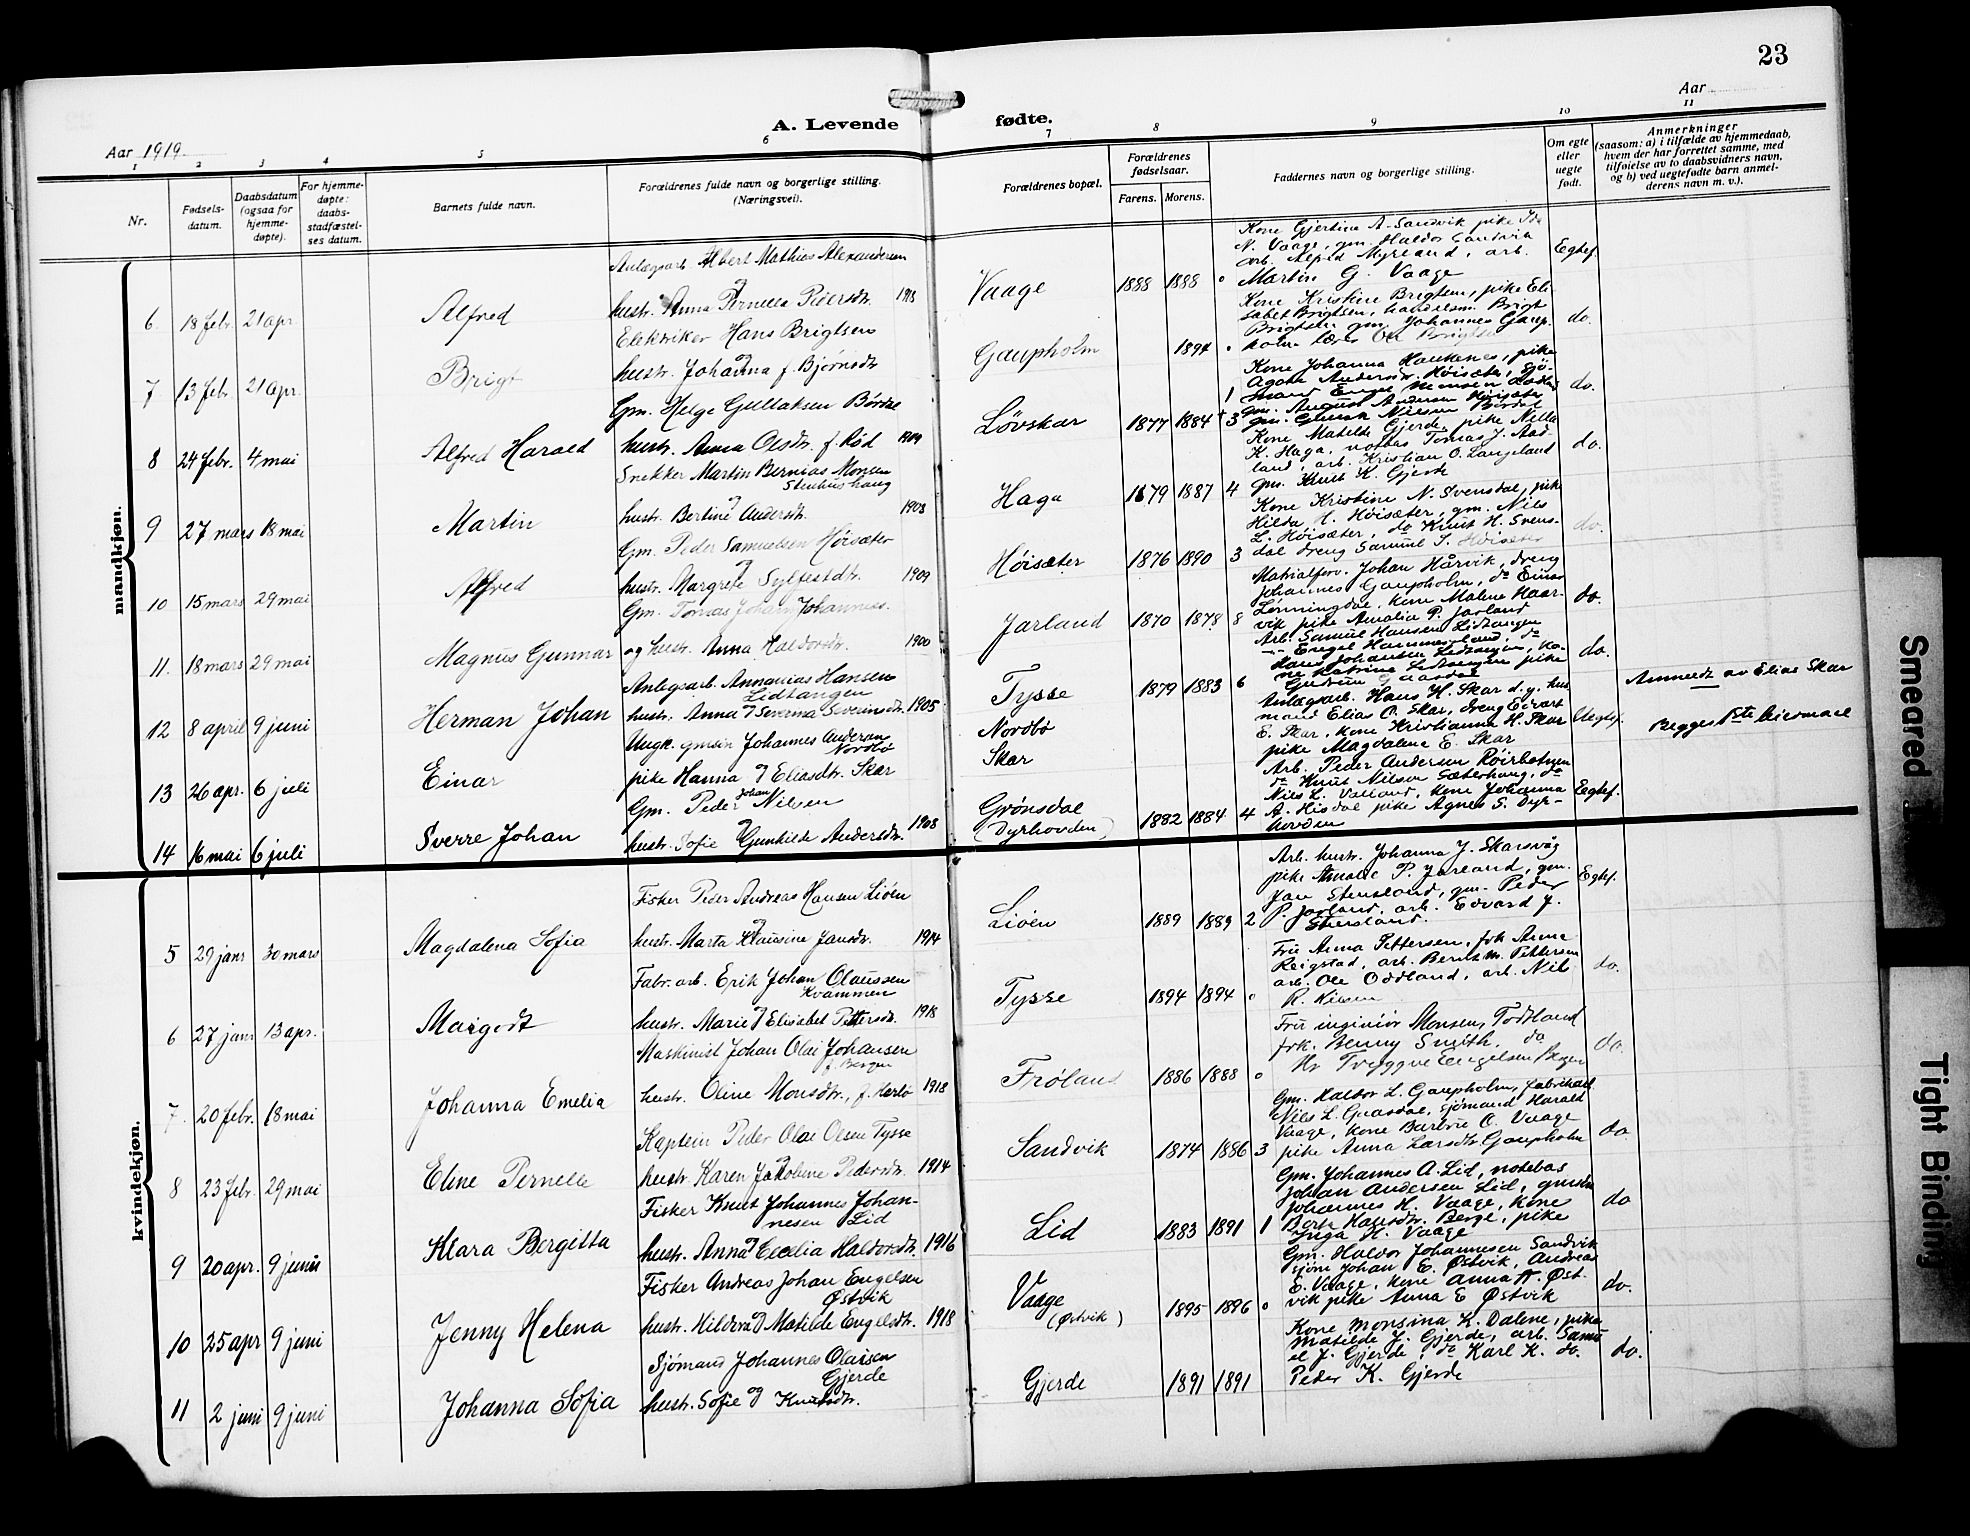 23
Aar
A. Levende fødte.
Aar 1919.
1 2 3 4 5 6 7 8 9 10 11
Nr.
Fødsels-
datum.
Daabsdatum
(ogsaa for
hjemme-
døpte).
For hjemme-
døpte:
daabs-
stadfæstel-
ses datum.
Barnets fulde navn.
Forældrenes fulde navn og borgerlige stilling.
(Næringsvei).
Forældrenes bopæl.
Forældrenes
fødselsaar.
Farens. Morens.
Faddernes navn og borgerlige stilling.
Om egte
eller
uegte
født.
Anmerkninger
(saasom: a) i tilfælde av hjemmedaab,
hvem der har forrettet samme, med
tilføielse av to daabsvidners navn,
og b) ved uegtefødte barn anmel-
derens navn m. v.).
mandkjøn.
6. 18 febr. 21 apr. Alfred
Anlægsarb. Albert Mathias Alexandersen
hustr. Anna Pernella Pedersdtr. 1918
Vaage 1888 1888 0
Kone Gjertine A. Sandvik pike Ida
N. Vaage, gm. Haldor Sandvik
arb. Alfred Myrland, arb.
Martin G. Vaage
Egtef.
7 13 febr 21 apr. Brigt
Elektriker Hans Brigtsen
hustr. Johanna f. Bjørnsdtr
Gaupholm 1894
Kone Kristine Brigtsen, pike Eli-
sabet Brigtsen, handelsm. Brigt
Brigtsen gm. Johannes Gaup-
holm lærer Ole Brigtsen
do.
8 24 febr. 4 mai Alfred Harald
Gm. Helge Gullaksen Børdal
hustr. Anna Olsdtr. f. Rød 1909
Løvskar 1877 1884 1 + 3
Kone Johanna Haukenes, pike
Agate Andersdtr. Høisæter, sjø-
mand Engel
gm. August Andersen Høisæter
gm. Nilsen Børdal
do.
9 27 mars 18 mai Martin
Snekker Martin Bernias Monsen
Stenhushaug
hustr. Bertine Andersdtr. 1908
Haga 1879 1887 4
Kone Matilde Gjerde, pike Nilla
K. Haga, notbas Tomas J. Aad-
land, arb. Kristian O. Langeland
gm. Knut K. Gjerde
do.
10 15 mars 29 mai Alfred
Gm. Peder Samuelsen Høisæter
hustr. Margrete Sylfestdtr. 1909
Høisæter 1876 1890 3
Kone Kristine N. Svensdal, pike
Hilda H. Høisæter, gm. Nils
L. Høisæter, do Knut H. Svens-
dal dreng Samuel S. Høisæter
do.
11. 18 mars 29 mai Magnus Gunnar
Gm. Tomas Johan Johanness.
og hustr. Anna Haldorsdtr. 1900
Jarland 1870 1878 8
Matrialforv. Johan Hårvik, dreng
Johannes Gaupholm, do Einar
Lønningdal, kone Malene Haar-
vik pike Amalia P. Jarland
do.
12 8 april 9 juni Herman Johan
Anlegsarb. Annanias Hansen
Lidtangen
hustr. Anna Severina Severinsdtr. 1905
Tysse 1879 1883 6
Arb. Samuel Hansen Lidtangen
Engel Hammersland, do
Hans Johansen Lidtangen, ko-
ne Katrina Lidtangen pike
Gudrun Gaasdal
do.
13 26 apr. 6 juli Einar
Ungk. gmsøn Johannes Andersen
Nordbø
pike Hanna Eliasdtr. Skar
Nordbø
Skar
Anlægarb. Hans H. Skar d.y. hus
mand Elias O. Skar, dreng Eivart
E. Skar, kone Kristianna H. Skar
pike Magdalene E. Skar
Uegtef.
Anmeldt av Elias Skar
Begges 1ste leiermaal
14 16 mai 6 juli Sverre Johan
Gm. Peder Johan Nilsen
hustr. Sofie Gunhilde Andersdtr. 1908
Grønsdal
(Dyrhovden) 1882 1884 4
Arb. Peder Andersen Røirbotnen
do Knut Nilsen Sæterhaug, do
Nils L. Valland, kone Johanna
A. Hisdal pike Agnes S. Dyr-
hovden
Egtef.
kvindekjøn.
5 29 janr 30 mars Magdalena Sofia
Fisker Peder Andreas Hansen Liøen
hustr. Marta Klausine Jansdtr. 1914
Liøen 1889 1889 2
Arb. hustr. Johanna J. Skarsvåg
pike Amalie P. Jarland, gm.
Jan Stensland, gm. Peder
P. Jarland, arb. Edvard J.
Stensland.
Egtef.
6 27 janr 13 apr. Margodt
Fabr. arb. Erik Johan Olaussen
Kvammen
hustr. Marie Elisabet Pettersdtr. 1918
Tysse 1894 1894 0
Fru Anna Pettersen, frk Anna
Reigstad, arb. Bernt M. Pettersen
arb. Ole Oddland, arb. Nils
R. Nilsen
do.
7. 20 febr. 18 mai Johanna Emelia
Maskinist Johan Olai Johansen
f. Bergen
hustr. Oline Monsdtr., f. Herlø 1918
Frøland 1886 1888 0
Fru ingeniør Monsen, Tøddland
frk. Benny Smith, do
Hr Tryggve Engelsen Bergen
do.
8 23 febr. 29 mai Eline Pernella
Kaptein Peder Olai Olsen Tysse
hustr. Karen Jakobine Pedersdtr. 1914
Sandvik 1874 1886 3
Gm. Haldor L. Gaupholm, fabrikarb
Nils L. Gaasdal, sjømand Harald
Vaage, kone Barbro O. Vaage
pike Anna Larsdtr. Gaupholm
do.
9 20 apr. 9 juni Klara Bergitta
Fisker Knut Johannes Johan-
nesen Lid
hustr. Anna Cecilia Haldorsdtr. 1916
Lid 1883 1891 1
Gm. Johannes A. Lid, notebas
Johan Andersen Lid, gmsøn
Johannes H. Vaage, kone
Berta Hansdtr. Berge, pike
Inga H. Vaage
do
10 25 apr 9 juni Jenny Helena
Fisker Andreas Johan Engelsen
Østvik
hustr. Hildera Matilde Engelsdtr. 1918
Vaage
(Østvik) 1895 1896 0
Gm. Haldor Johannesen Sandvik
sjöm Johan E. Østvik, Andreas
E. Vaage, kone Anna A. Øst-
vik pike Anna E Østvik
do.
11 2 juni 9 juni Johanna Sofia
Sjømand Johannes Olaisen
Gjerde
hustr. Sofie Knutsdtr.
Gjerde 1891 1891
Kone Monsina K. Dalene, pike
Matilde J. Gjerde, arb. Samu-
el J. Gjerde, do Karl K. do.
Peder K. Gjerde
do.
Smeared
Tight Binding